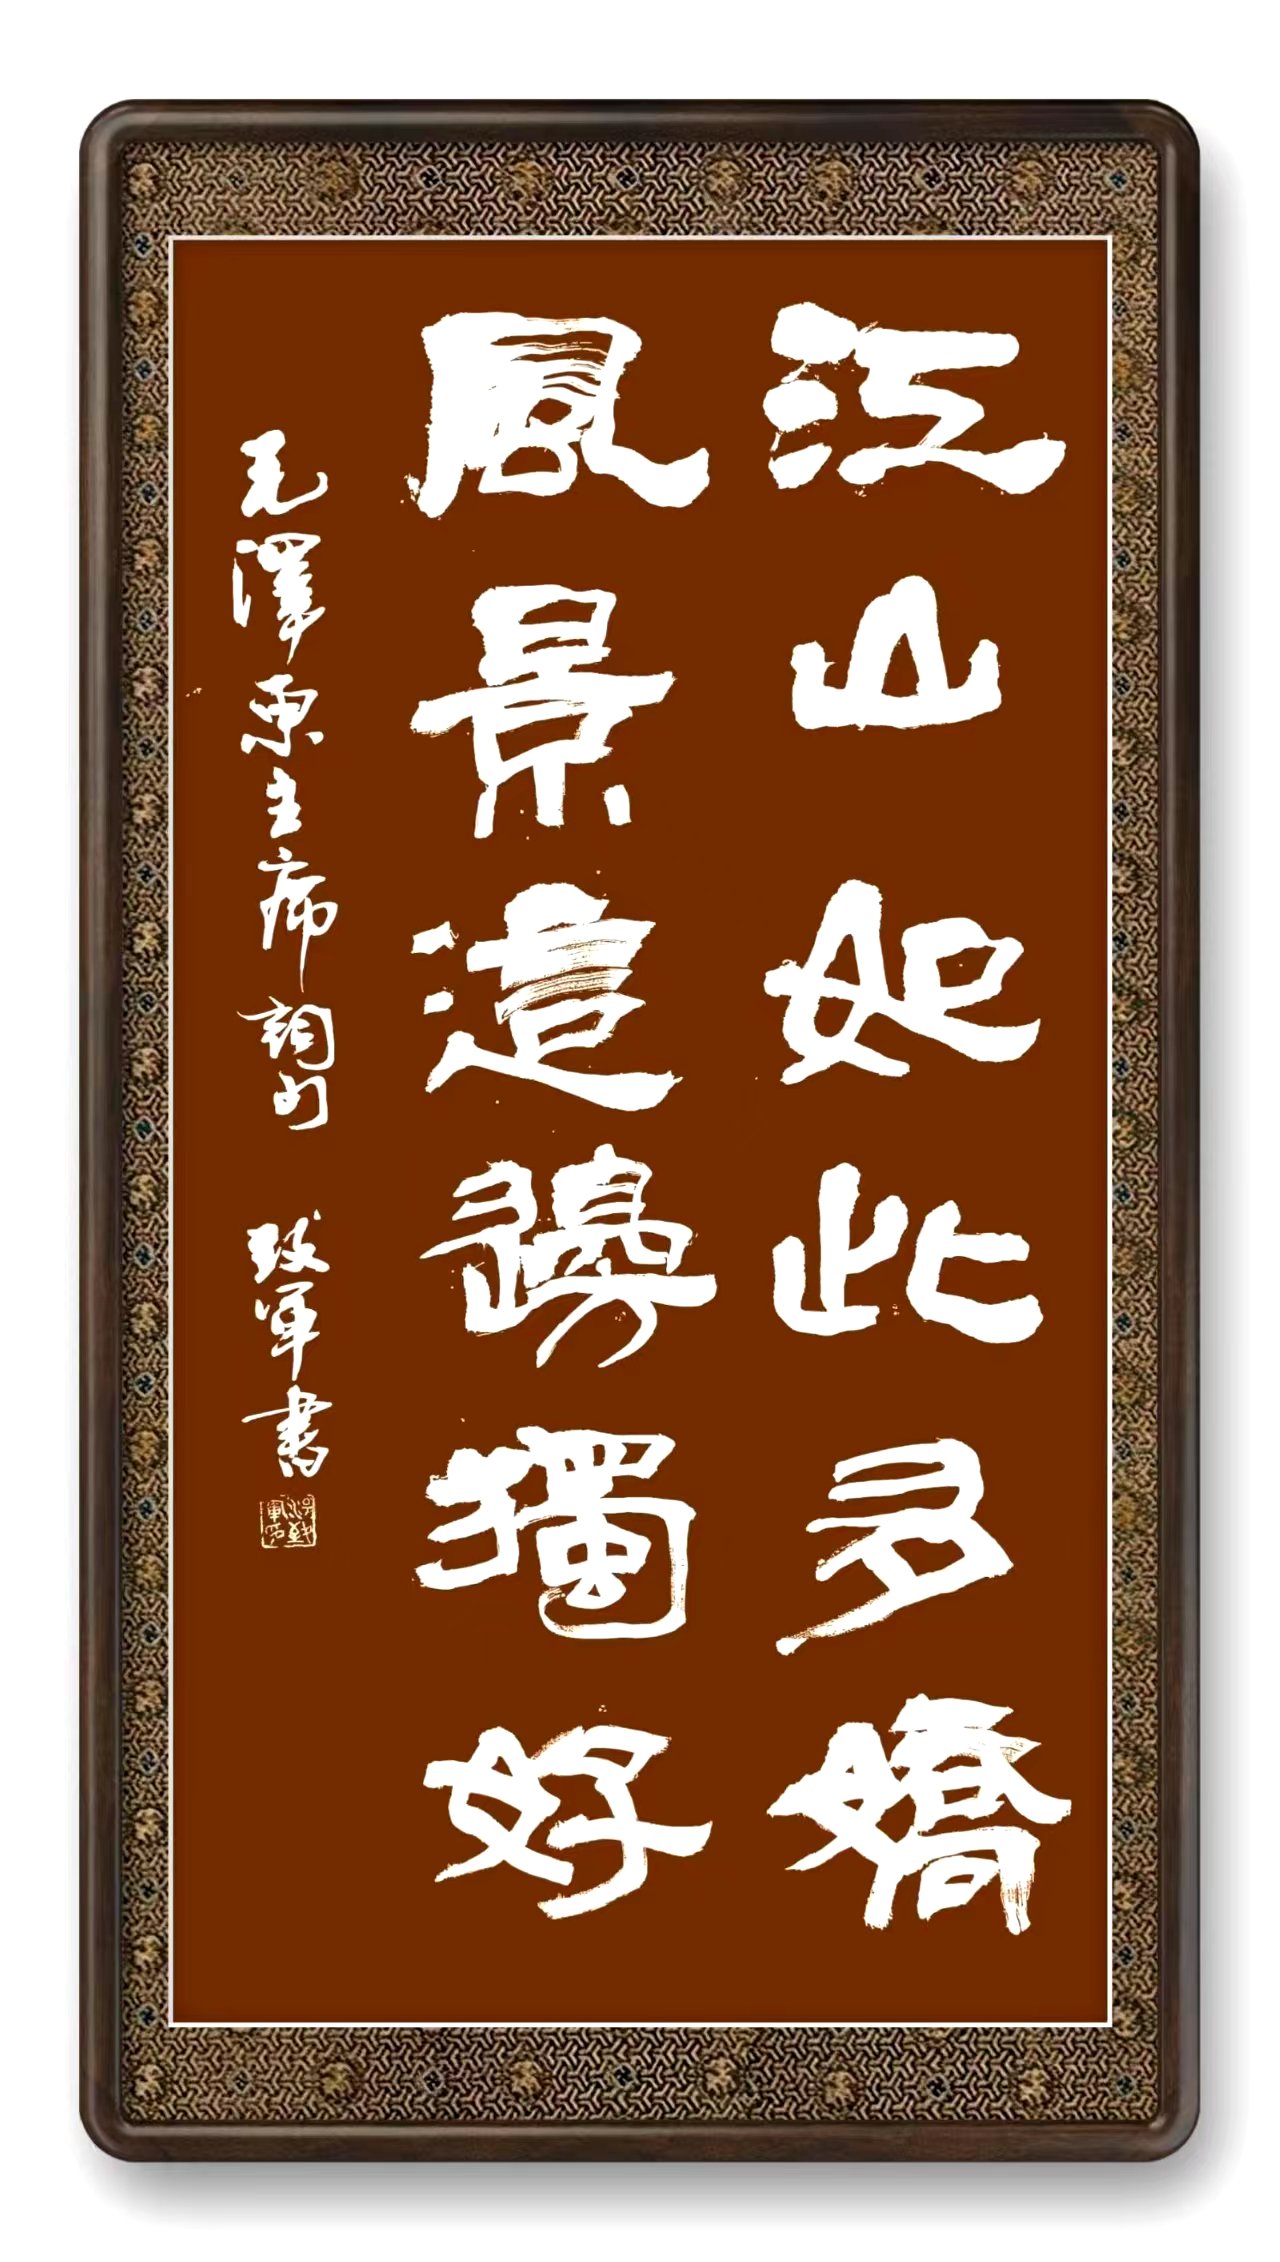 江山如此多嬌
風景這邊獨好
毛澤東主席詞句 政軍書